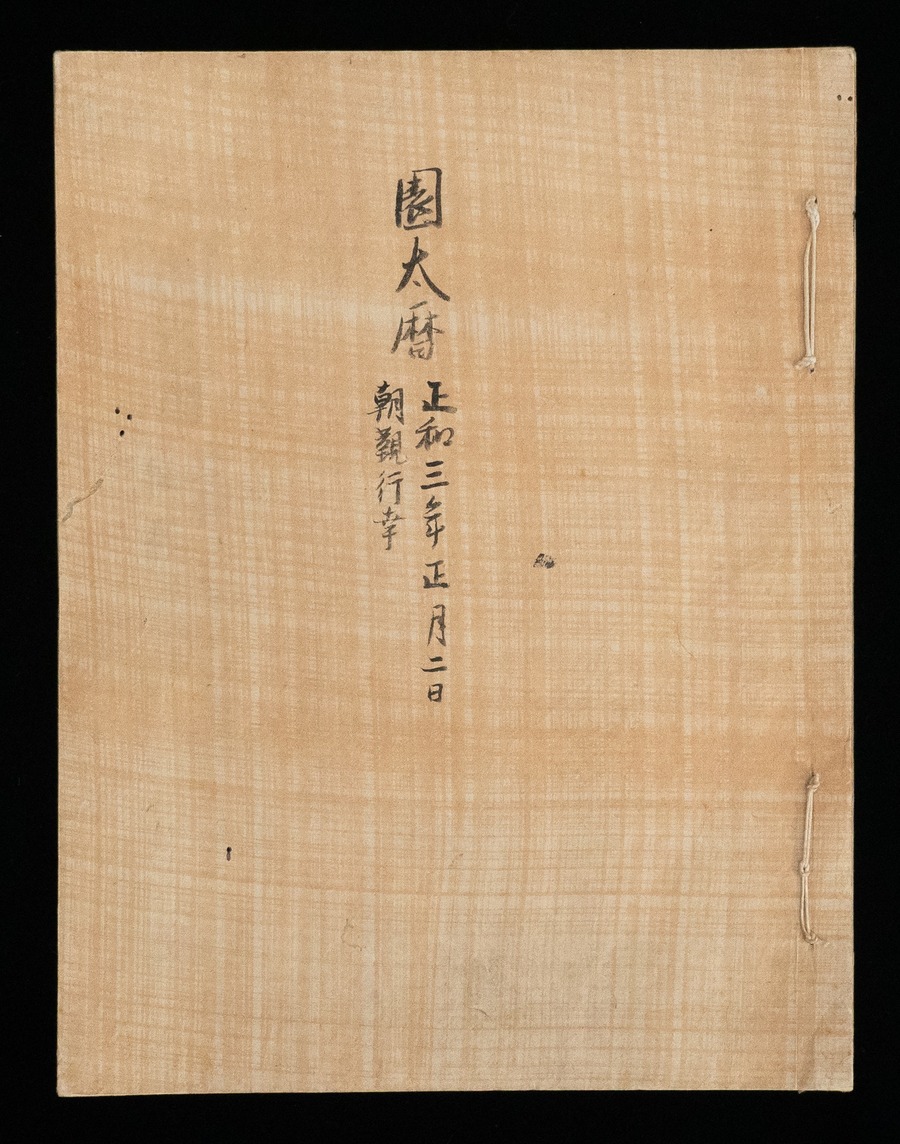 園太暦
正和三年正月二日
朝覲行幸